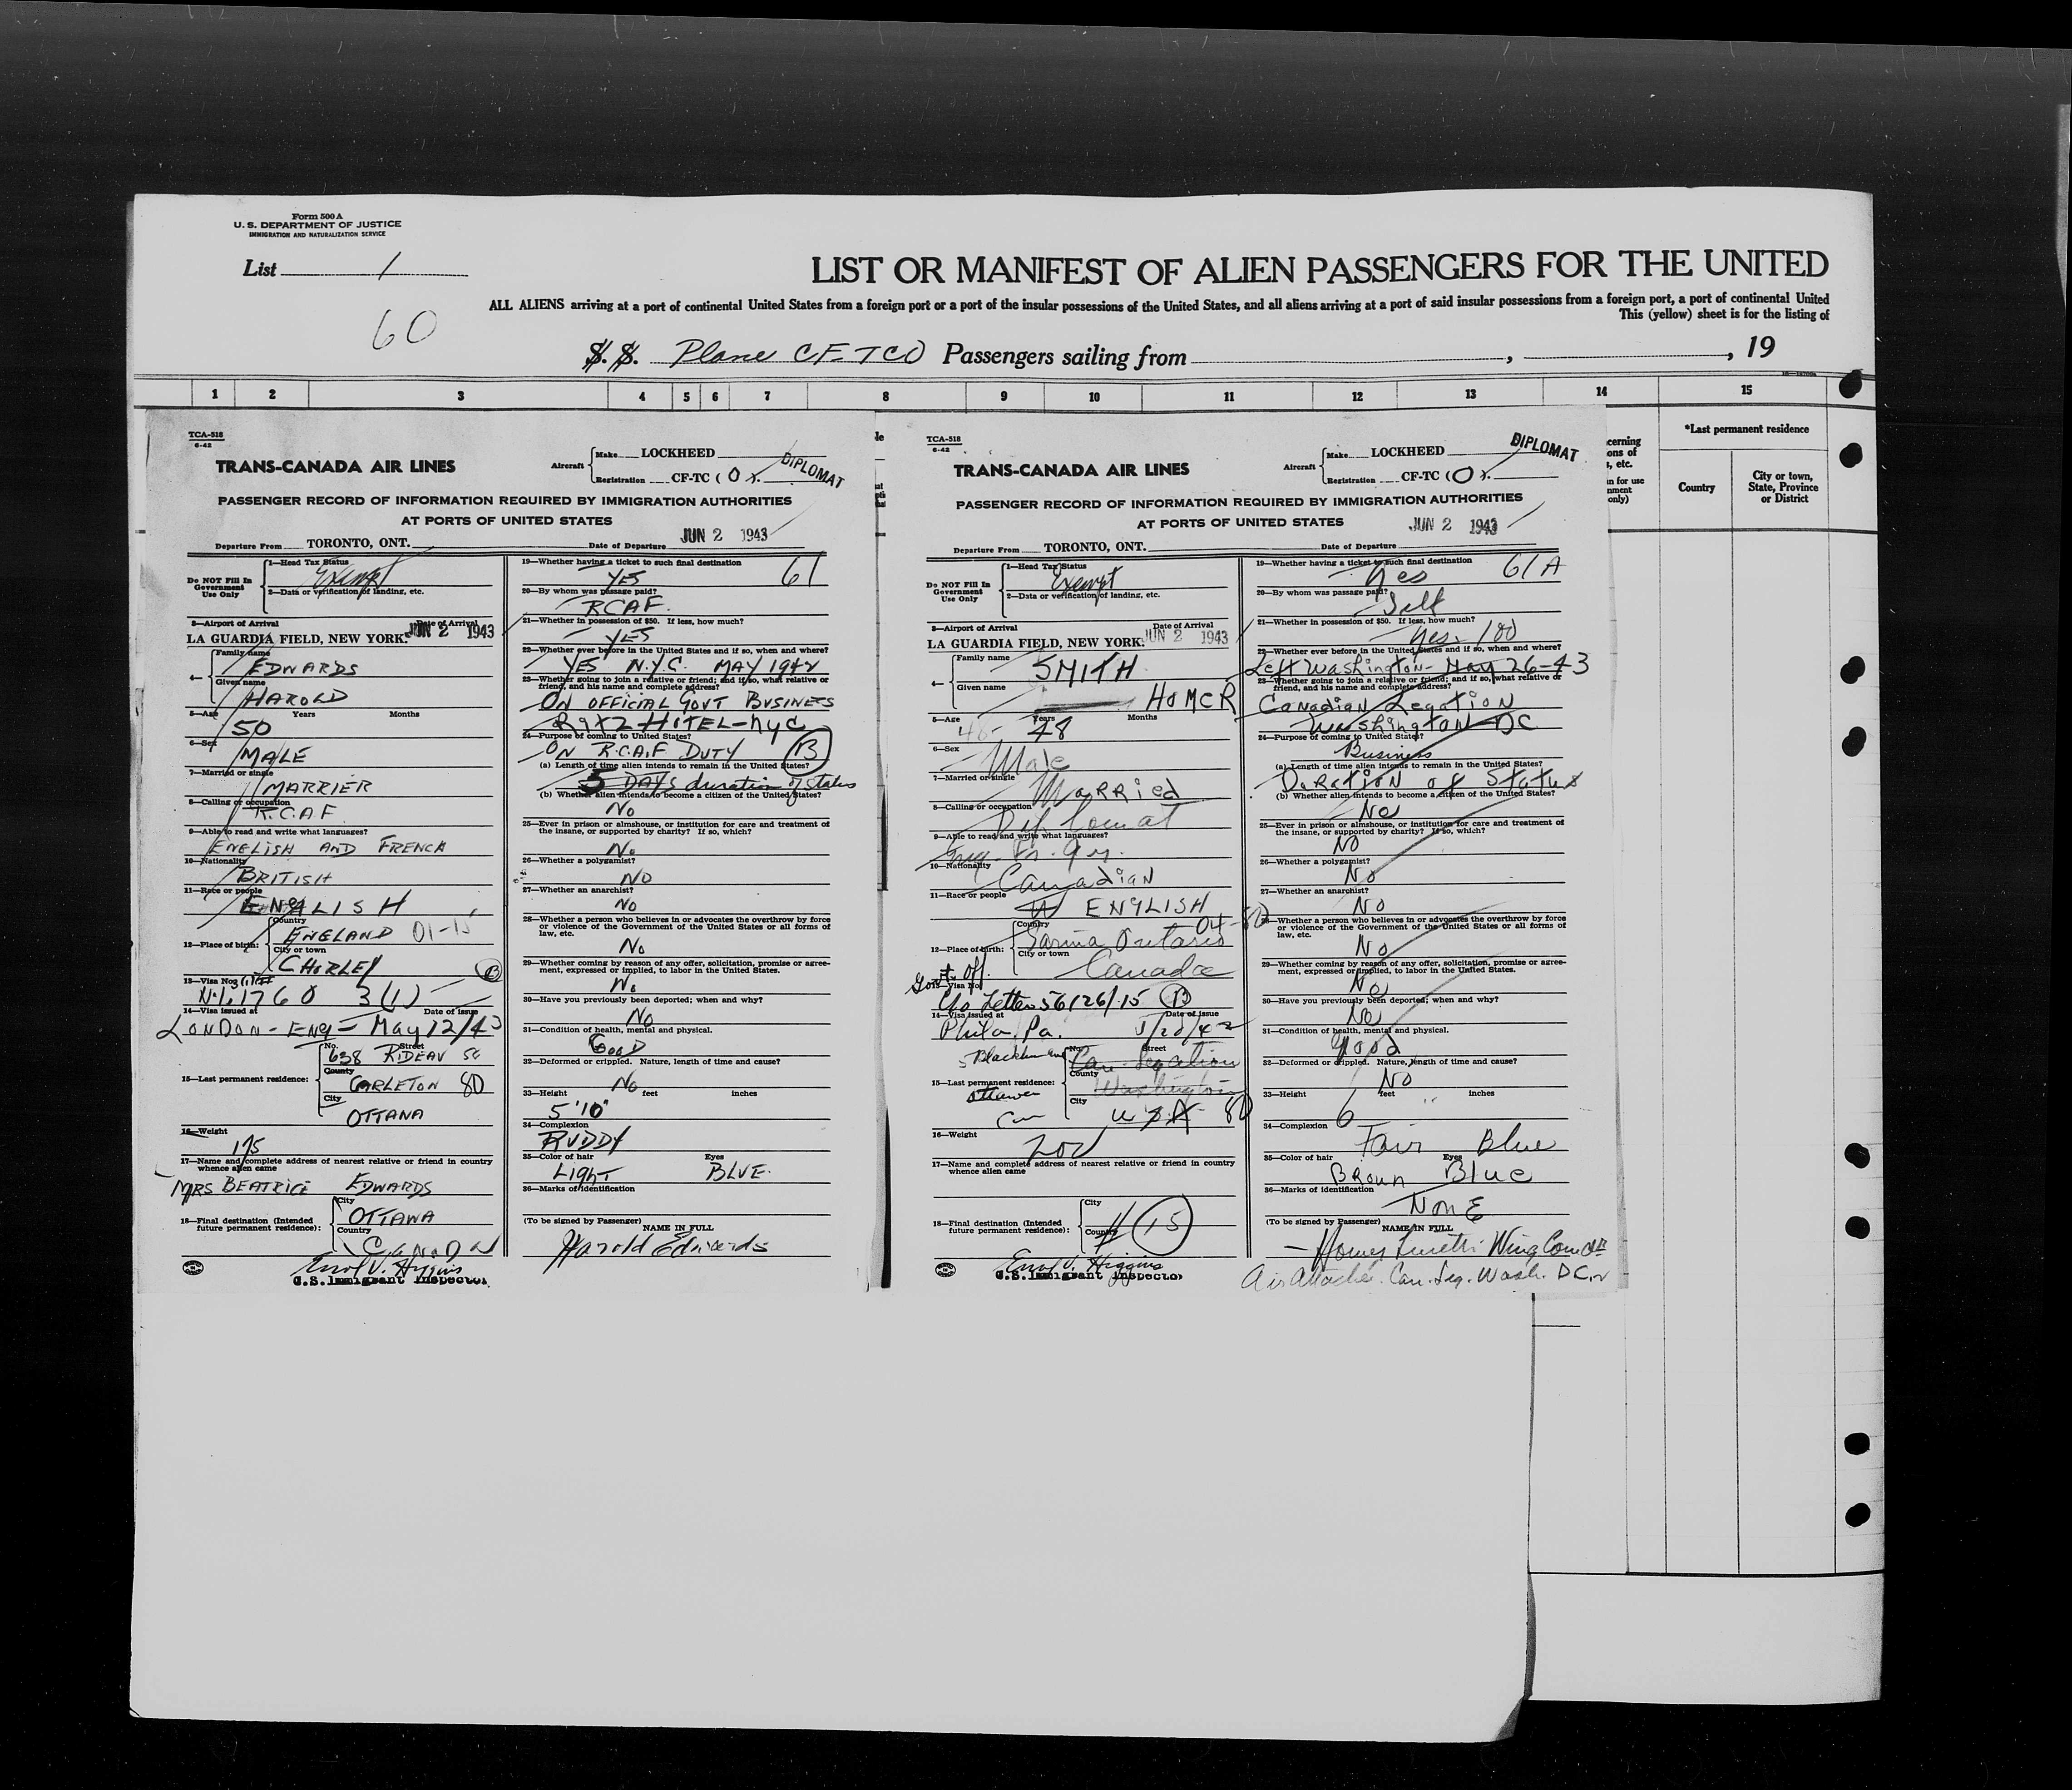 Form 500 A
U. S. DEPARTMENT OF JUSTICE
IMMIGRATION AND NATURALIZATION SERVICE
List 1
60
LIST OR MANIFEST OF ALIEN PASSENGERS FOR THE UNITED
ALL ALIENS arriving at a port of continental United States from a foreign port or a port of the insular possessions of the United States, and all aliens arriving at a port of said insular possessions from a foreign port, a port of continental United
This (yellow) sheet is for the listing of
S. S. Plane CF-TCO Passengers sailing from , , 19
1 2 3 4 5 6 7 8 9 10 11 12 13 14 15
*Last permanent residence
Country
City or town, State, Province or District
TCA-518
6-42
TRANS-CANADA AIR LINES
Aircraft
Make LOCKHEED
Registration CF-TC (O).
DIPLOMAT
PASSENGER RECORD OF INFORMATION REQUIRED BY IMMIGRATION AUTHORITIES
AT PORTS OF UNITED STATES
JUN 2 1943
Departure From TORONTO, ONT. Date of Departure
Do NOT Fill In Government Use Only
1—Head Tax Status
Exempt
2—Data or verification of landing, etc.
3—Airport of Arrival Date of Arrival
LA GUARDIA FIELD, NEW YORK. JUN 2 1943
4— Family name
EDWARDS
Given name
HAROLD
5—Age Years Months
50
6—Sex
MALE
7—Married or single
MARRIER
8—Calling or occupation
R.C.A.F
9—Able to read and write what languages?
ENGLISH AND FRENCH
10—Nationality
BRITISH
11—Race or people
ENGLISH
12—Place of birth: Country
ENGLAND 01-15
City or town
CHORLEY
B
13—Visa No.
No. 61760 3(1)
14—Visa issued at Date of issue
LONDON - ENG - May 12/43
15—Last permanent residence: No. Street
638 RIDEAU St
County
CARLETON 80
City
OTTANA
16—Weight
175
17—Name and complete address of nearest relative or friend in country whence alien came
MRS BEATRICE EDWARDS
18—Final destination (Intended future permanent residence): City
OTTAWA
Country
CANADA
Errol V. Higgins
U.S. Immigrant Inspector
19—Whether having a ticket to such final destination
YES 61
20—By whom was passage paid?
RCAF.
21—Whether in possession of $50. If less, how much?
YES
22—Whether ever before in the United States and if so, when and where?
YES N.Y.C. MAY 1942
23—Whether going to join a relative or friend; and if so, what relative or friend, and his name and complete address?
ON OFFICIAL GOVT BUSINESS
HOTEL - NYC
24—Purpose of coming to United States?
ON R.C.A.F DUTY B
(a) Length of time alien intends to remain in the United States?
5 DAYS duration of status
(b) Whether alien intends to become a citizen of the United States?
No
25—Ever in prison or almshouse, or institution for care and treatment of the insane, or supported by charity? If so, which?
No
26—Whether a polygamist?
NO
27—Whether an anarchist?
NO
28—Whether a person who believes in or advocates the overthrow by force or violence of the Government of the United States or all forms of law, etc.
No
29—Whether coming by reason of any offer, solicitation, promise or agreement, expressed or implied, to labor in the United States.
No
30—Have you previously been deported; when and why?
No
31—Condition of health, mental and physical.
GOOD
32—Deformed or crippled. Nature, length of time and cause?
No
33—Height feet inches
5'10"
34—Complexion
RUDDY
35—Color of hair Eyes
LIGHT BLUE.
36—Marks of identification
(To be signed by Passenger)
NAME IN FULL
Harold Edwards
TCA-518
6-42
TRANS-CANADA AIR LINES
Aircraft
Make LOCKHEED
Registration CF-TC (O).
DIPLOMAT
PASSENGER RECORD OF INFORMATION REQUIRED BY IMMIGRATION AUTHORITIES
AT PORTS OF UNITED STATES
JUN 2 1943
Departure From TORONTO, ONT. Date of Departure
Do NOT Fill In Government Use Only
1—Head Tax Status
Exempt
2—Data or verification of landing, etc.
3—Airport of Arrival Date of Arrival
LA GUARDIA FIELD, NEW YORK. JUN 2 1943
4— Family name
SMITH
Given name
HOMER
5—Age Years Months
48
6—Sex
Male
7—Married or single
Married
8—Calling or occupation
Diplomat
9—Able to read and write what languages?
Eng. Fr. Ger.
10—Nationality
Canadian
11—Race or people
ENGLISH
12—Place of birth: Country
Sarnia Ontario 04-80
City or town
Canada
Govt. Off.
13—Visa No.
Letter 56126/15 B
14—Visa issued at Date of issue
Phila, Pa.
15—Last permanent residence: No. Street
Can. Legation
County
Washington
Ottawa
City
USA 80
Can
16—Weight
200
17—Name and complete address of nearest relative or friend in country whence alien came
18—Final destination (Intended future permanent residence): City
Country
15
Errol V. Higgins
U.S. Immigrant Inspector
19—Whether having a ticket to such final destination
Yes 61A
20—By whom was passage paid?
Self
21—Whether in possession of $50. If less, how much?
Yes. 100
22—Whether ever before in the United States and if so, when and where?
Left Washington - May 26-43
23—Whether going to join a relative or friend; and if so, what relative or friend, and his name and complete address?
Canadian Legation
Washington DC
24—Purpose of coming to United States?
Business
(a) Length of time alien intends to remain in the United States?
Duration of Status
(b) Whether alien intends to become a citizen of the United States?
No
25—Ever in prison or almshouse, or institution for care and treatment of the insane, or supported by charity? If so, which?
NO
26—Whether a polygamist?
No
27—Whether an anarchist?
NO
28—Whether a person who believes in or advocates the overthrow by force or violence of the Government of the United States or all forms of law, etc.
No
29—Whether coming by reason of any offer, solicitation, promise or agreement, expressed or implied, to labor in the United States.
No
30—Have you previously been deported; when and why?
No
31—Condition of health, mental and physical.
Good
32—Deformed or crippled. Nature, length of time and cause?
No
33—Height feet inches
6
34—Complexion
Fair Blue
35—Color of hair Eyes
Brown Blue
36—Marks of identification
None
(To be signed by Passenger)
NAME IN FULL
Homer Smith Wing Comdr
Air Attaché. Can. Leg. Wash. D.C.